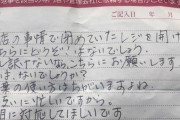 ご記入日 年 月
店の事情で閉めていたレジを開け
ちらにどうぞ はないでしょう。
し訳ないなら、こちらにお願いします
は、ないでしょうか?
葉の使い方はちがいますよね。
互いに忙しいですから。
に対応してほしいです